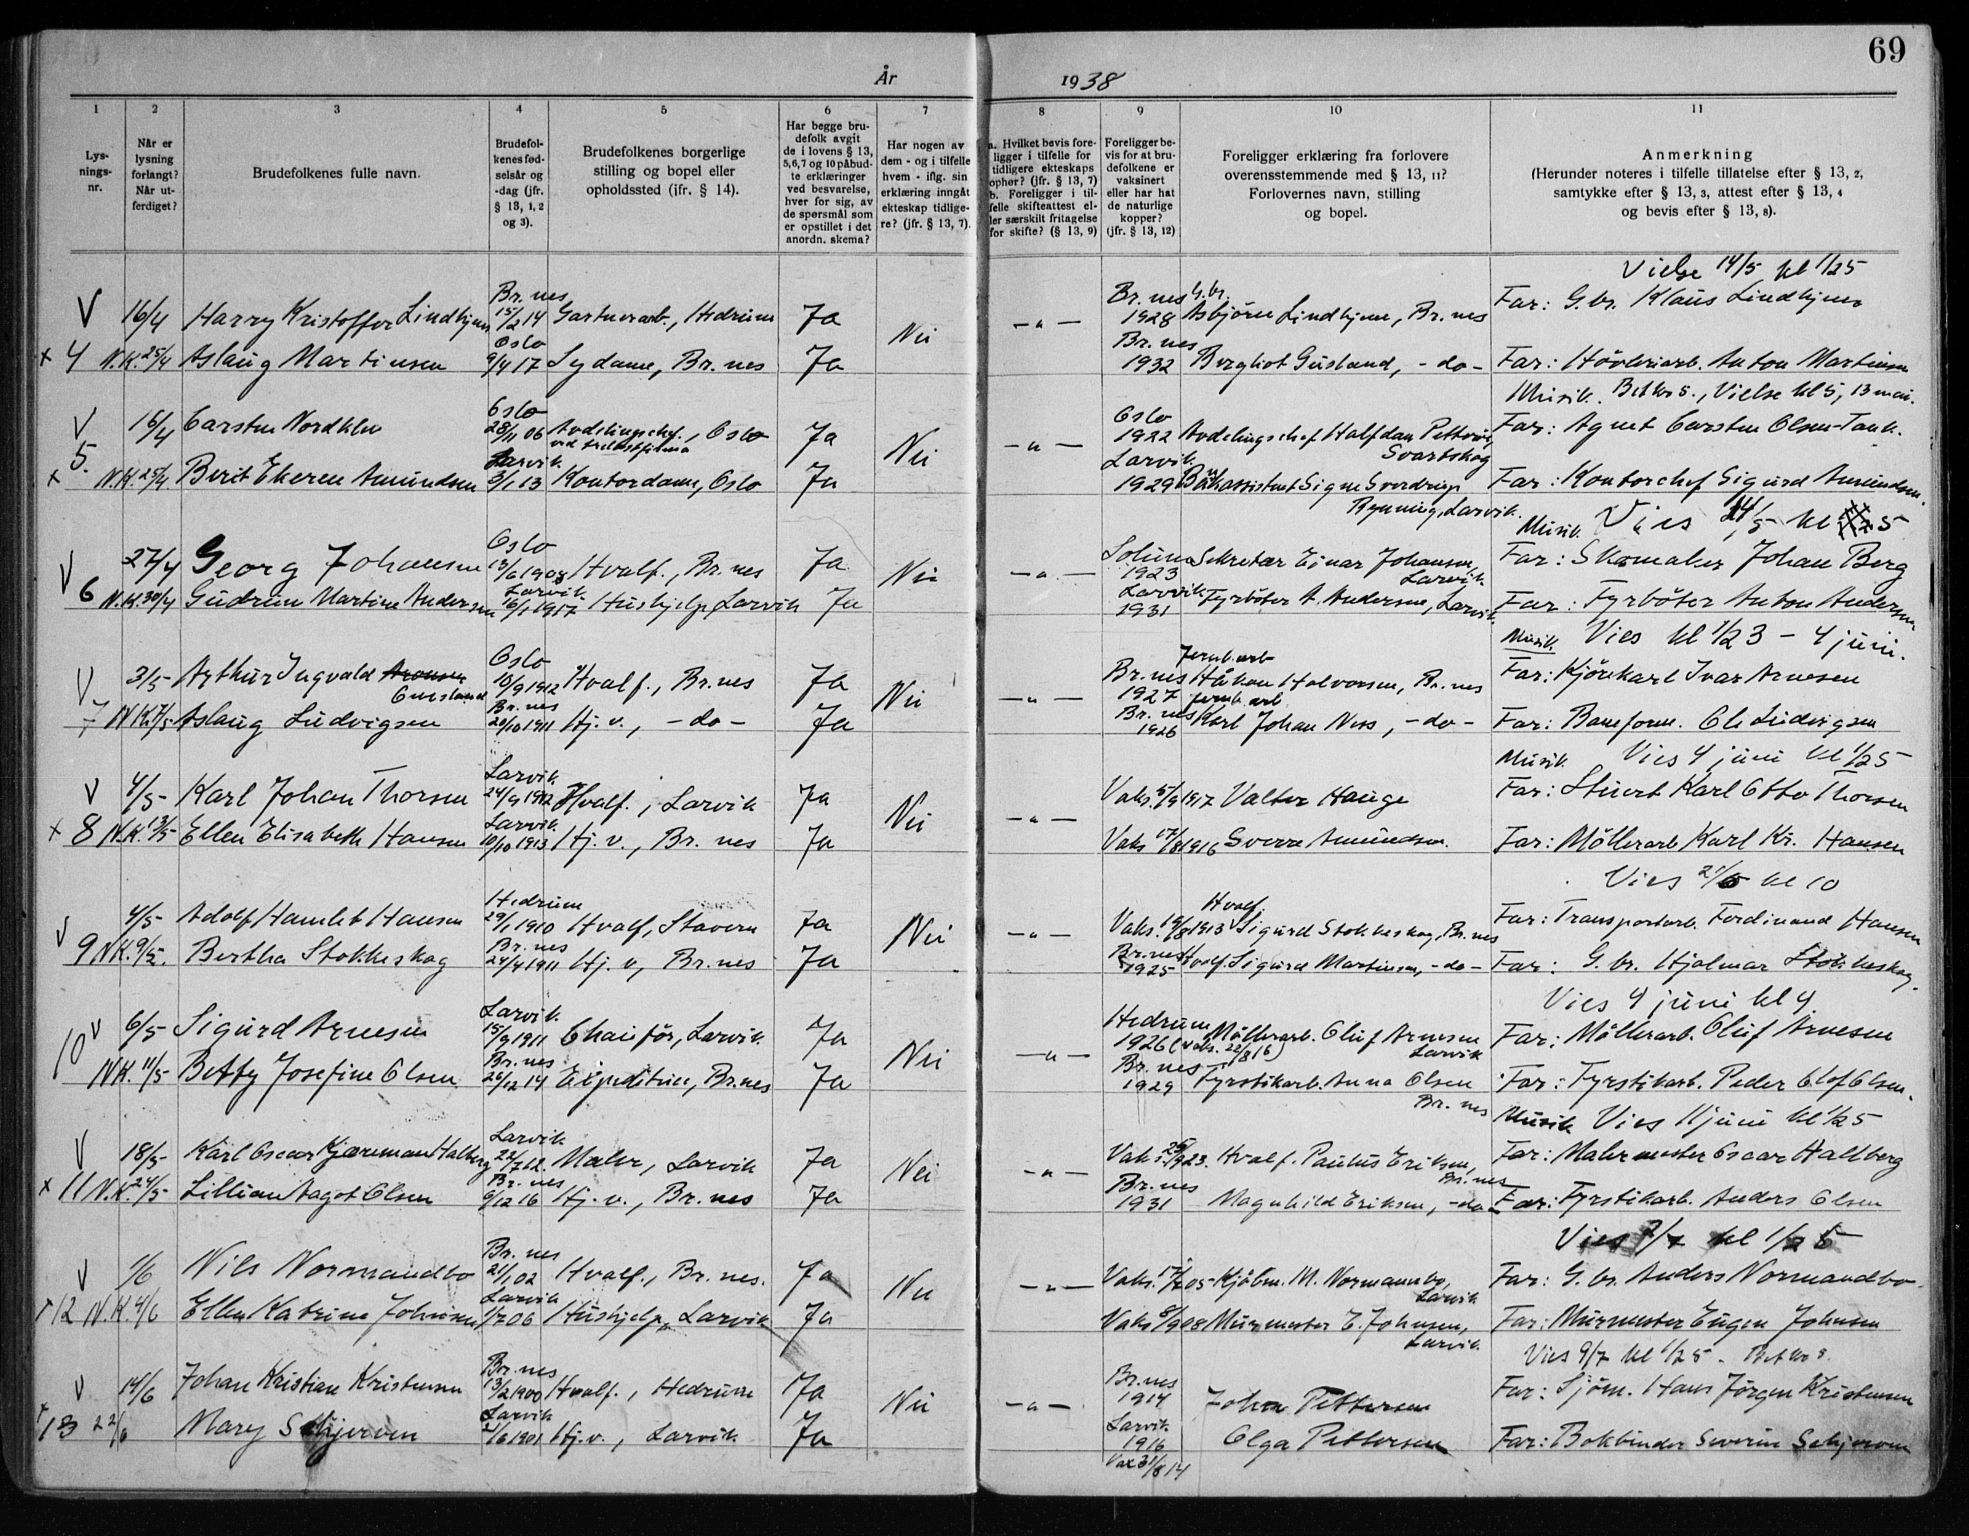 69
År 1938
1 2 3 4 5 6 7 8 9 10 11
Lys-
nings-
nr.
Når er
lysning
forlangt?
Når ut-
ferdiget?
Brudefolkenes fulle navn.
Brudefol-
kenes fød-
selsår og
-dag (jfr.
§ 13, 1, 2
og 3).
Brudefolkenes borgerlige
stilling og bopel eller
opholdssted (ifr. § 14).
Har begge bru-
defolk avgit
de i lovens § 13,
5,6,7 og 10 påbud-
te erklæringer
ved besvarelse,
hver for sig, av
de spørsmål som
er opstillet i det
anordn. skema?
Har nogen av
dem - og i tilfelle
hvem - iflg. sin
erklæring inngått
ekteskap tidlige-
re? (jfr. § 13, 7).
a. Hvilket bevis fore-
ligger i tilfelle for
tidligere ekteskaps
ophør? (jfr. § 13, 7)
b. Foreligger i til-
felle skifteattest el-
ler særskilt fritagelse
for skifte? (§ 13, 9)
Foreligger be-
vis for at bru-
defolkene er
vaksinert
eller har hat
de naturlige
kopper?
(jfr. § 13, 12)
Foreligger erklæring fra forlovere
overensstemmende med § 13, 11?
Forlovernes navn, stilling
og bopel.
Anmerkning
(Herunder noteres i tilfelle tillatelse efter § 13, 2,
samtykke efter § 13, 3, attest efter § 13, 4
og bevis efter § 13, 8).
Vielse 14/5 kl 1/2 5
V 16/4 Harry Kristoffer Lindhjem Br. nes 15/2 14 Gartnerarb., Hedrum Ja Nei -"- Br. nes 1928 G.br. Asbjörn Lindhjem, Br. nes Far: G. br. Klaus Lindhjem
x 4 N.K. 25/4 Aslaug Martinsen Oslo 9/4 17 Sydame, Br. nes Ja Br. nes 1932 Bergliot Gusland, -do- Far: Hövleriarb. Anton Martinsen
Musik. Bet kr 8., Vielse kl 5, 13 mai.
V 5. 16/4 Carsten Nordklev Oslo 28/11 06 Avdelingschef. ved trelastfirma, Oslo Ja Nei -"- Oslo 1922 Avdelingschef Halfdan Petteröe, Svartskog Far: Agent Carsten Olsen-Tank.
x N.K. 25/4. Berit Ekeren Amundsen Larvik 3/1 13 Kontordame, Oslo Ja Larvik 1929 Bankassistent Signe Sverdrup Rynning, Larvik. Far: Kontorchef Sigurd Amundsen.
Musik. Vies 14/5 kl 5
V 27/4 Georg Johansen Oslo 13/6 1908 Hvalf., Br. nes Ja Nei -"- Solum 1923 Sekretær Einar Johansen, Larvik Far: Skomaker Johan Berg
6 N.K. 30/4 Gudrun Martine Andersen Larvik 16/1 1917 Hushjelp, Larvik Ja Larvik 1931 Fyrböter A. Andersen, Larvik. Far: Fyrböter Anton Andersen
Musik. Vies kl 1/2 3 - 4 juni.
V 3/5 Arthur Ingvald Gusland Oslo 10/9 1912 Hvalf., Br. nes Ja Nei -"- Br. nes 1927 Jernb. arb Håkon Halvorsen, Br. nes Far: Kjörekarl Ivar Arnesen
7 N.K. 7/5 Aslaug Ludvigsen Br. nes 20/10 1911 Hj. v., -do- Ja Br. nes 1926 Jernb. arb. Karl Johan Ness, -do- Far: Baneform. Ole Ludvigsen
Musik Vies 4 juni kl 1/2 5
V 4/5 Karl Johan Thorsen Larvik 24/9 1912 Hvalf., Larvik Ja Nei -"- Vaks. 5/9 1917 Valter Hauge Far: Stuert Karl Otto Thorsen
x 8 N.K. 13/5 Ellen Elisabeth Hansen Larvik 10/10 1913 Hj. v., Br. nes Ja Vaks 17/8 1916 Sverre Amundsen. Far: Möllerarb Karl Kr. Hansen
Vies 21/5 kl 10
V 4/5 Adolf Hamlet Hansen Hedrum 29/1 1910 Hvalf, Stavern Ja Nei -"- Vaks. 19/8 1913 Hvalf. Sigurd Stokkeskog, Br. nes Far: Transportarb. Ferdinand Hansen
9 N.K. 9/5. Bertha Stokkeskog Br. nes 24/4 1911 Hj. v, Br. nes Ja Br. nes 1925 Hvalf. Sigurd Martinsen, -do- Far: G. br. Hjalmar Stokkeskog.
Vies 4 juni kl 4
10 V 6/5 Sigurd Arnesen Larvik 15/9 1911 Chauför, Larvik. Ja Nei -"- Hedrum 1926 (Vaks. 22/8 16) Möllerarb. Oluf Arnesen Larvik Far: Möllerarb. Oluf Arnesen
N.K. 11/5 Betty Josefine Olsen Br. nes 26/12 14 Expeditrise, Br. nes Ja Br. nes 1929 Fyrstikarb. Anna Olsen Br. nes Far: Fyrstikarb. Peder Olof Olsen.
Musik Vies 11 juni kl 1/2 5
V 18/5 Karl Oscar Kjæreman Halberg Larvik 22/7 12. Maler, Larvik Ja Nei -"- Vaks. 25/9 23. Hvalf. Paulus Eriksen, Br. nes Far: Malermester Oscar Hallberg
x 11 N.K. 24/5 Lillian Aagot Olsen Br. nes 6/12 16 Hj. v., Br. nes Ja Br. nes 1931 Magnhild Eriksen, -do- Far: Fyrstikarb. Anders Olsen
Vies 2/7 kl 1/2 5
V 1/6 Nils Normandbo Br. nes 21/1 02 Hvalf., Br. nes. Ja Nei -"- Vaks. 17/7 05 Kjöbm. M. Normannbo, Larvik Far: G. br. Anders Normandbo
12 N.K. 4/6 Ellen Katrine Johnsen Larvik 1/7 06 Hushjelp, Larvik Ja Vaks 8/9 08 Murmester E. Johnsen, Larvik Far: Murmester Eugen Johnsen
Vies 9/7 kl 1/2 5 - Bet kr 8.
V 14/6 Johan Kristian Kristensen Br. nes 13/2 1900 Hvalf., Hedrum Ja Nei -"- Br. nes 1914 Johan Pettersen Far: Sjöm. Hans Jörgen Kristensen
13 22/6 Mary Schjerven Larvik /6 1901 Hj. v., Larvik Ja Larvik 1916 Vax 31/8 14 Olga Pettersen Far: Bokbinder Severin Schjerven